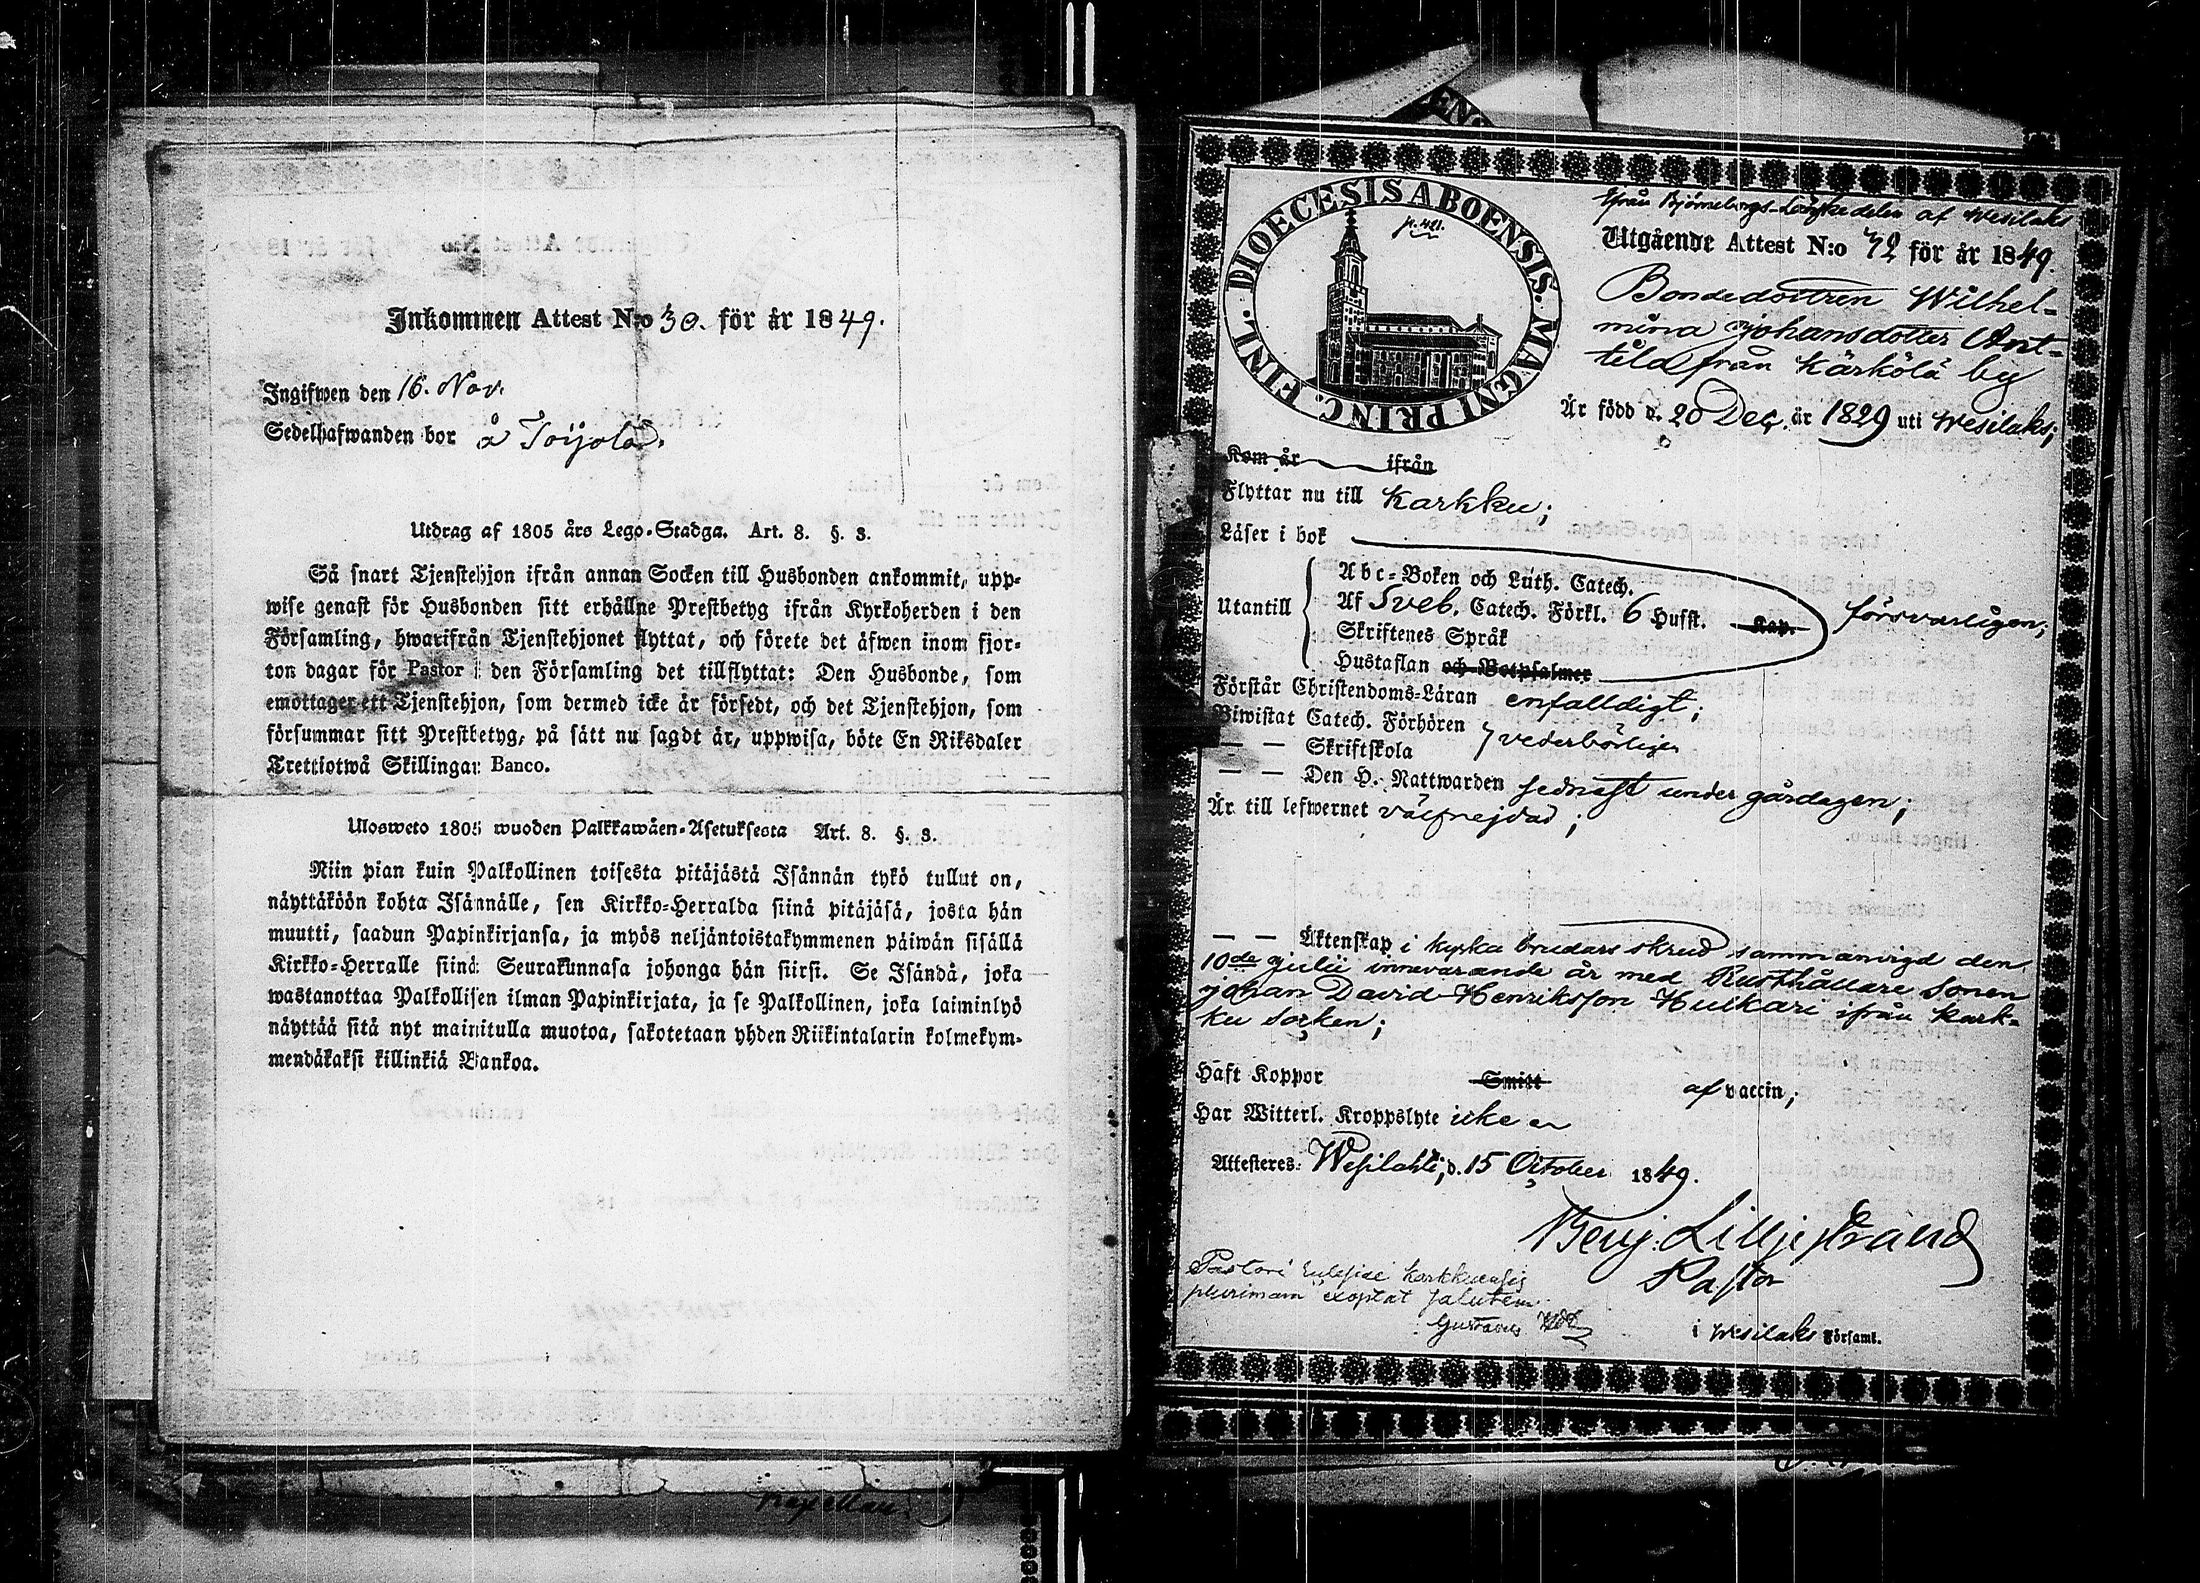 Inkommen Attest N:o 30. för år 1849.
Ingifwen den 16. Nov.
Sedelhafwanden bor å Toijola.
Utdrag af 1805 års Lego-Stadga. Art. 8. §. 3.
Så snart Tjenstehjon ifrån annan Socken till Husbonden ankommit, upp-
wise genast för Husbonden sitt erhållne Prestbetyg ifrån Kyrkoherden i den
Församling, hwarifrån Tjenstehjonet flyttat, och förete det äfwen inom fjor-
ton dagar för Pastor i den Församling det tillflyttat: Den Husbonde, som
emottager ett Tjenstehjon, som dermed icke är försedt, och det Tjenstehjon, som
försummar sitt Prestbetyg, på sätt nu sagdt är, uppwisa, böte En Riksdaler
Trettiotwå Skillingar Banco.
Ulosweto 1805 wuoden Palkkawäen-Asetuksesta Art. 8. §. 3.
Niin pian kuin Palkollinen toisesta pitäjästä Isännän tykö tullut on,
näyttäköön kohta Isännälle, sen Kirkko-Herralda siinä pitäjäsä, josta hän
muutti, saadun Papinkirjansa, ja myös neljäntoistakymmenen päiwän sisällä
Kirkko-Herralle siinä Seurakunnasa johonga hän siirsi. Se Isändä, joka
wastanottaa Palkollisen ilman Papinkirjata, ja se Palkollinen, joka laiminlyö
näyttää sitä nyt mainitulla muotoa, sakotetaan yhden Riikintalarin kolmekym-
mendäkaksi killinkiä Bankoa.
DIOECESIS ABOENSIS. MAGNI PRINC. FINL.
p. 421.
Ifrån Björneborgs-Länsdelen af Wesilaks
Utgående Attest N:o 72 för år 1849.
Bondedottren Wilhel-
mina Johansdotter Ant-
tila från Kärkölä by
Är född d. 20 Dec. år 1829 uti Wesilaks;
Kom år ifrån
Flyttar nu till Karkku;
Läser i bok
Utantill
Abc-Boken och Luth. Catech.
Af Sveb. Catech. Förkl. 6 Hufst. Kap.
Skriftenes Språk
Hustaflan och Botpsalmer
försvarligen;
Förstår Christendoms-Läran enfalldigt;
Biwistat Catech. Förhören
— — Skriftskola
vederbörligen
— — Den H. Nattwarden sednast under gårdagen;
Är till lefwernet välfrejdad;
— — Äktenskap i kyrka brudars skrud sammanvigd den
10de Julii innevarande år med Rusthållare Sonen
Johan David Henriksson Hulkari ifrån Kark-
ku Socken;
Haft Koppor Smitt af vaccin;
Har Witterl. Kroppslyte icke en
Attesteres: Wesilahti, d. 15 October 1849.
Benj. Lilljestrand
Pastor
i Wesilaks Församl.
Pastori Eclesiae Karkkuensis
plurimam exoptat salutem
Gustavus
Kapellan